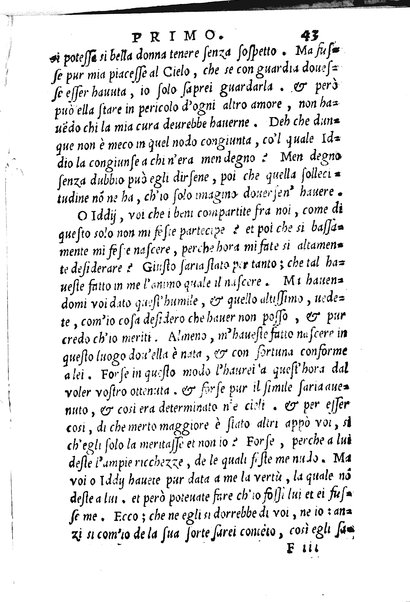 PRIMO. 43
si potesse si bella donna tenere senza sospetto. Ma fus-
se pur mia piacesse al Cielo, che se con guardia doues-
se esser hauuta, io solo saprei guardarla. & però
può ella stare in pericolo d'ogni altro amore, non ha-
uẽdo chi la mia cura deurebbe hauerne. Deh che dun-
que non è meco in quel nodo congiunta, co'l quale Id-
dio la congiunse a chi n'era men degno? Men degno
senza dubbio può egli dirsene, poi che quella solleci-
tudine nõ ne ha, ch'io solo imagino douersen' hauere.
O Iddij, voi che i beni compartite fra noi, come di
questo solo non mi feste partecipe? et poi che si bassa-
mente mi feste nascere, perche hora mi fate si altamen-
te desiderare? Giusto saria stato per tanto; che tal ha-
ueste fatto in me l'animo quale il nascere. Mi hauen-
domi voi dato quest'humile, & quello altissimo, uede-
te, com'io cosa desidero che hauer non posso, & pur
credo ch'io meriti. Almeno, m'haueste fatto nascere in
questo luogo dou'ella è nata, & con fortuna conforme
a lei. Forse in questo modo l'haurei a quest'hora dal
voler vostro ottenuta. & forse pur il simile saria aue-
nuto, & cosi era determinato ne cieli. & per esser
cosi, di che merto maggiore è stato altri appò voi, si
ch'egli solo la meritasse et non io? Forse, perche a lui
deste l'ampie ricchezze, de le quali feste me nudo. Ma
voi o Iddy hauete pur data a me la vertù, la quale nõ
deste a lui. et però poteuate fare ch'io fossi lui et ei fus-
se me. Ecco; che ne egli si dorrebbe di voi, ne io: an-
zi si com'io de la sua sorte sarei contẽto, così egli sa-
F iii